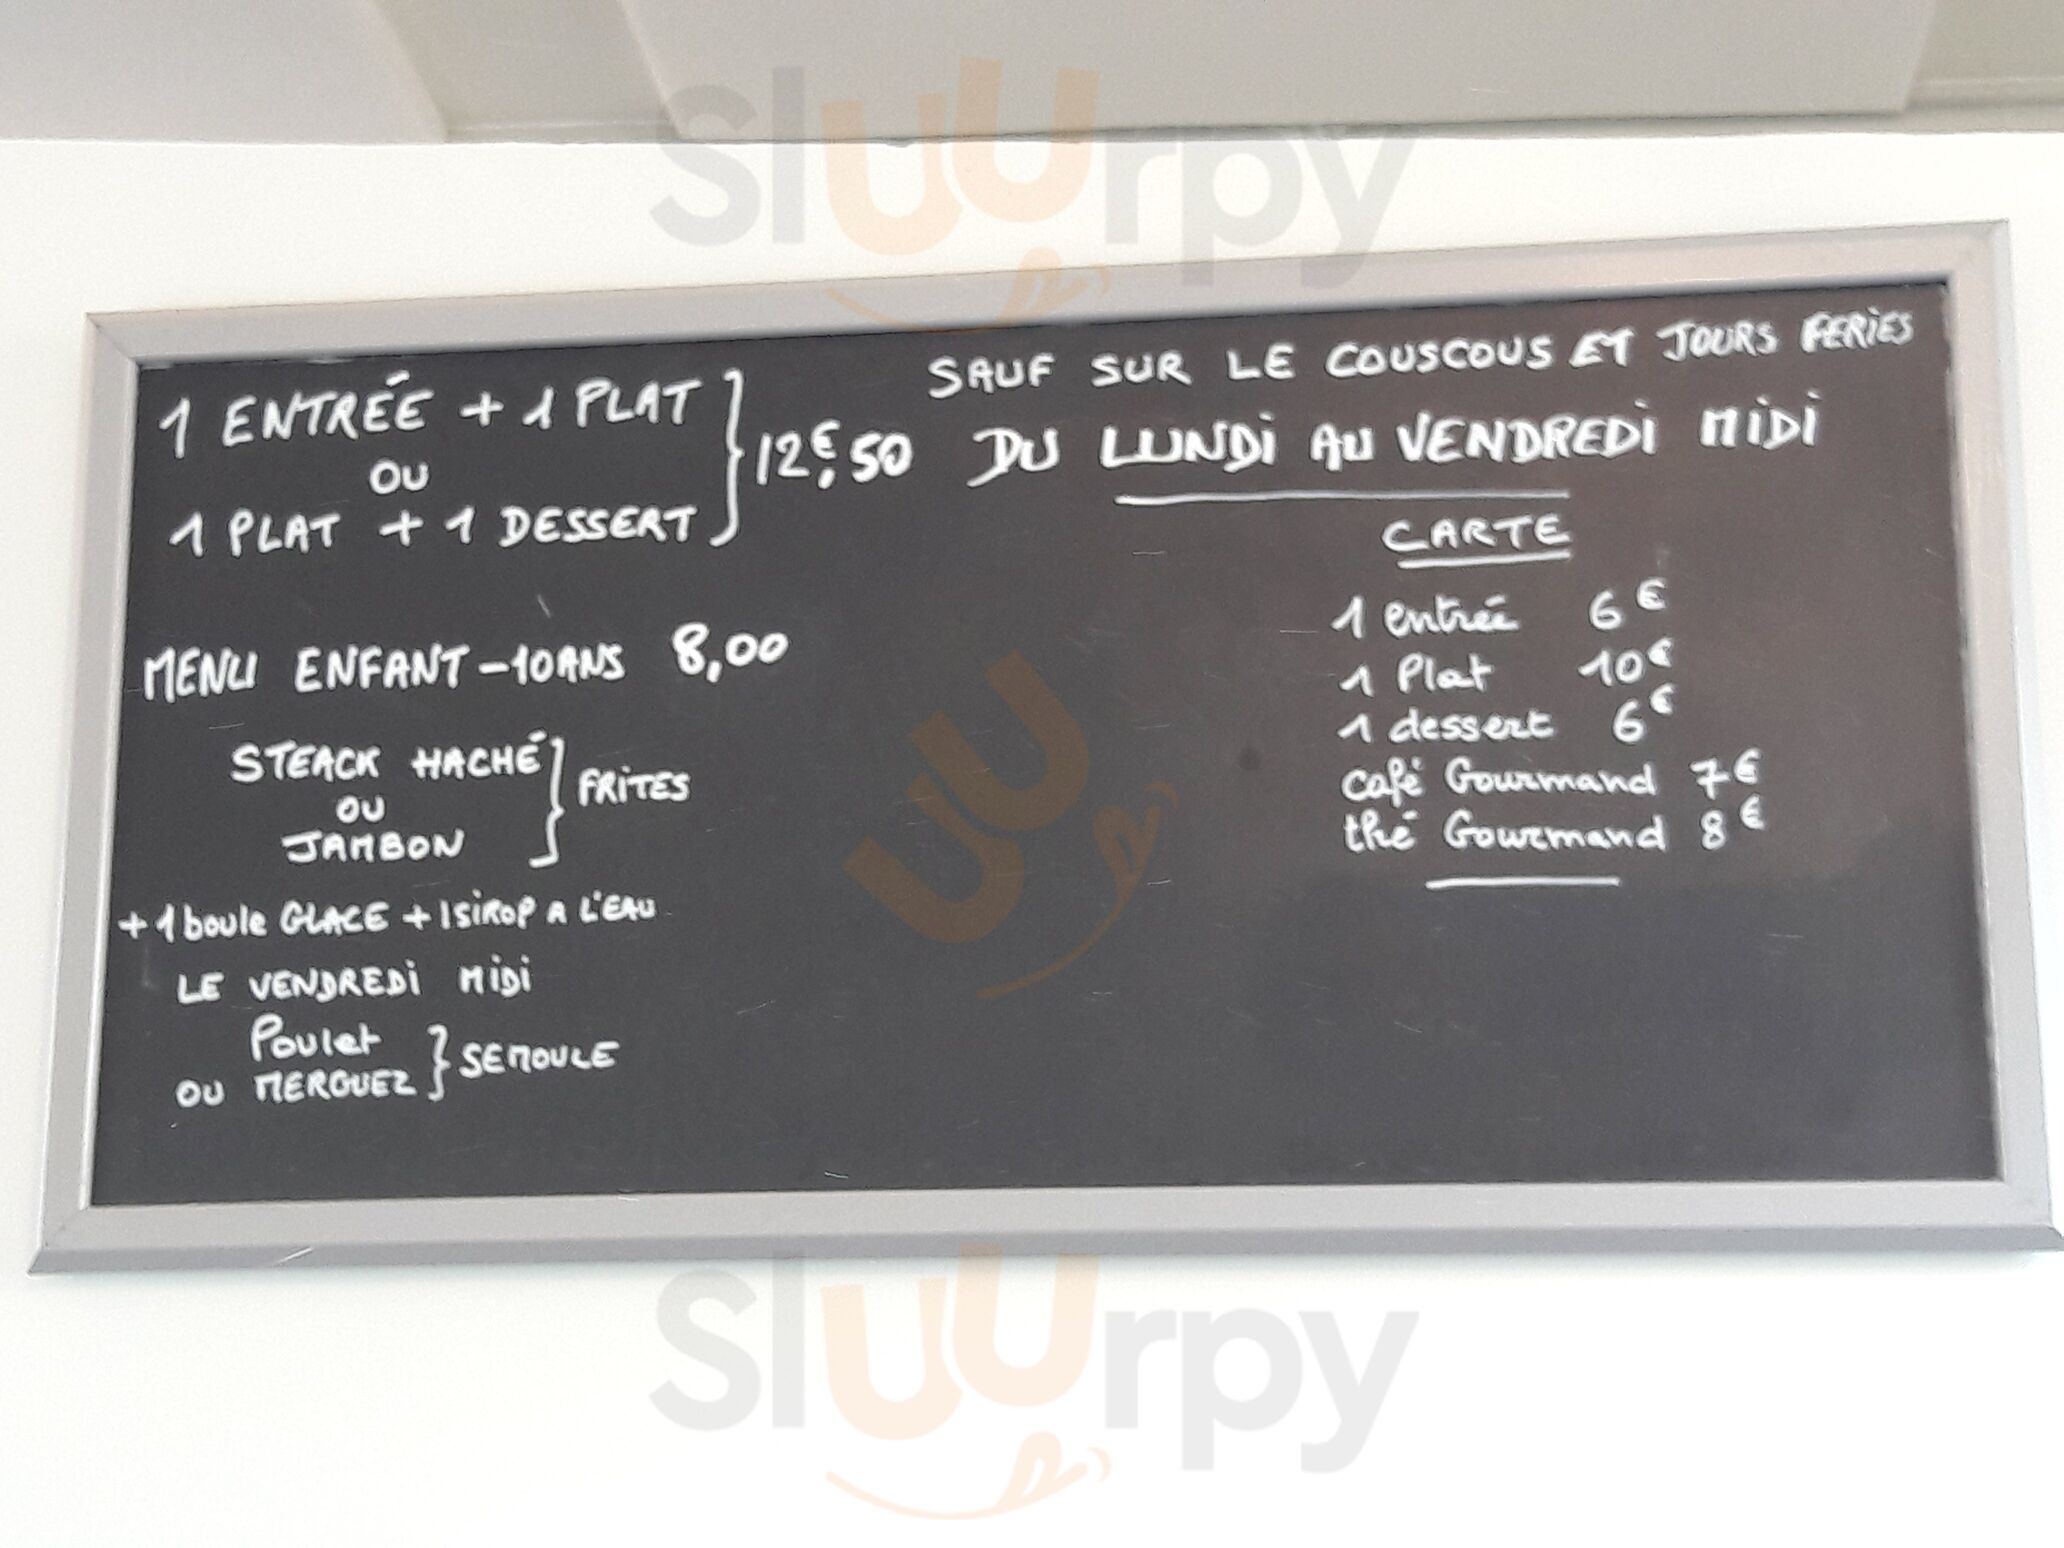 sluurpy
SAUF SUR LE COUSCOUS ET JOURS FERIES
1 ENTRÉE + 1 PLAT
OU
1 PLAT + 1 DESSERT
12€,50 DU LUNDI AU VENDREDI MIDI
MENU ENFANT -10ANS 8,00
STEACK HACHÉ
OU
JAMBON
FRITES
+ 1 boule GLACE + 1 SIROP A L'EAU
LE VENDREDI MIDI
Poulet
OU MERGUEZ
SEMOULE
CARTE
1 entrée 6€
1 Plat 10€
1 dessert 6€
café Gourmand 7€
thé Gourmand 8€
sluurpy